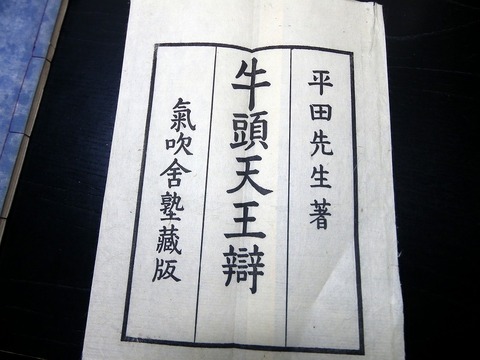 平田先生著
牛頭天王辯
氣吹舍塾藏版